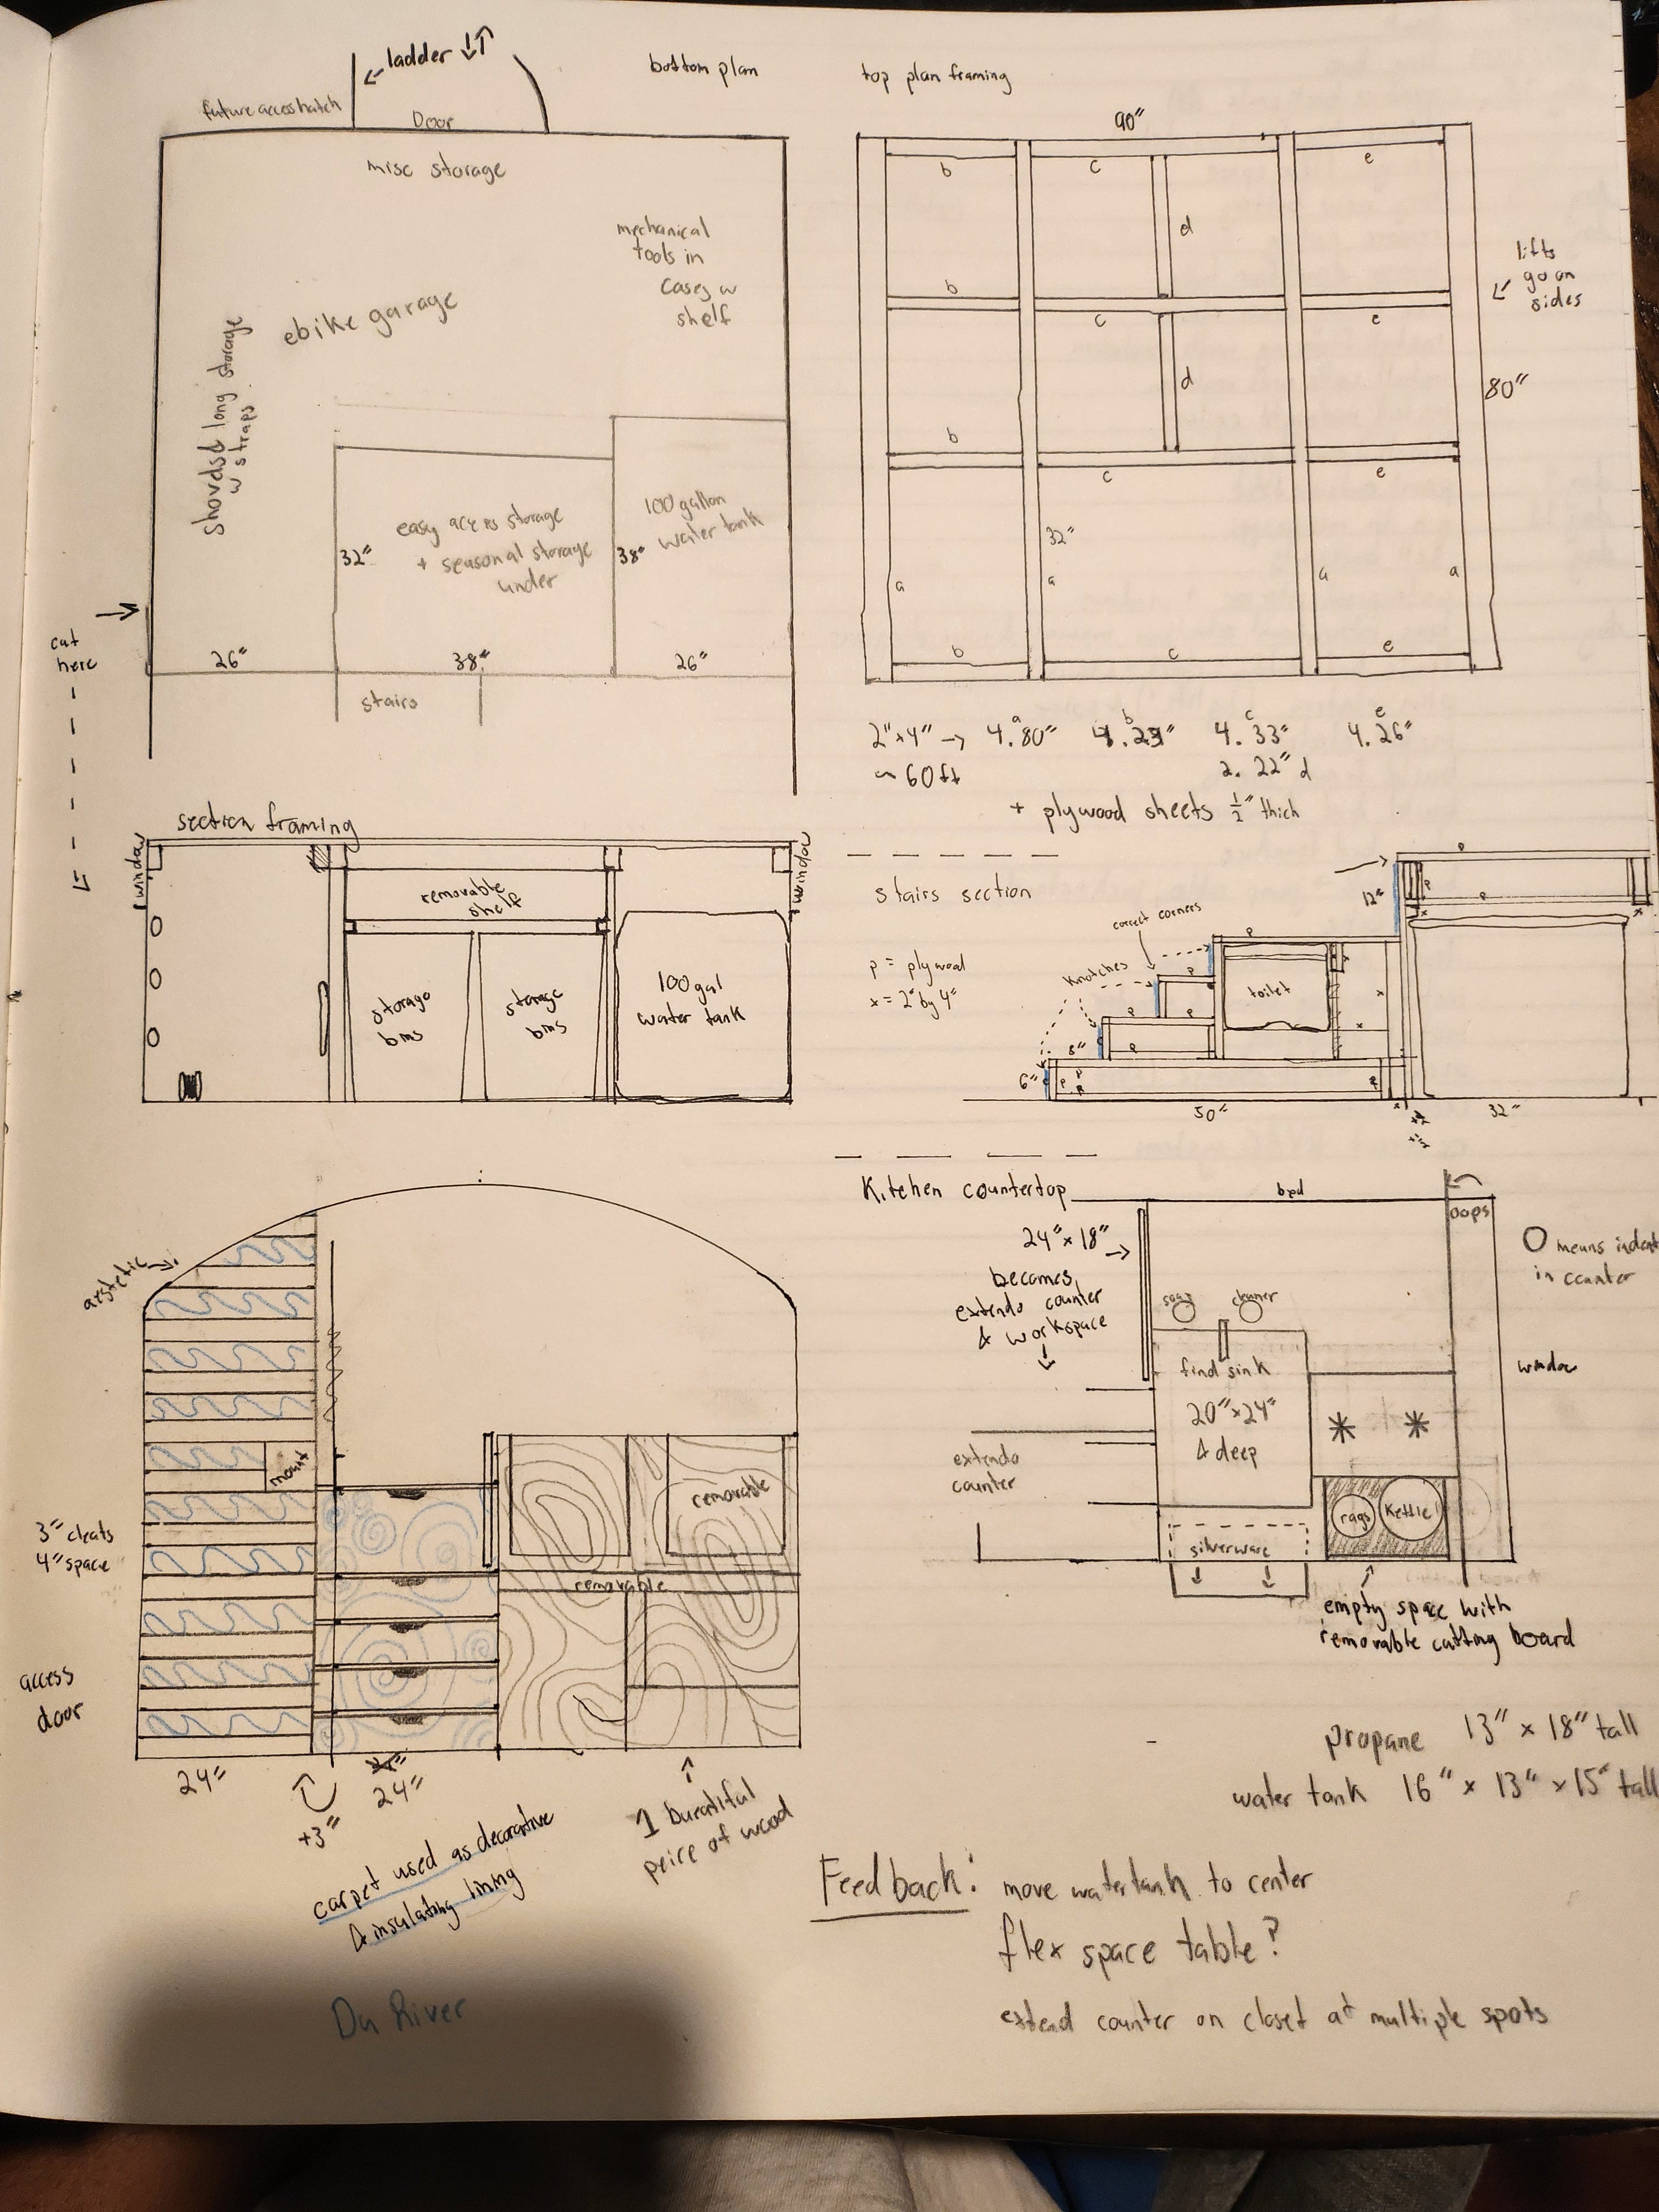 ladder
bottom plan
top plan framing
future access hatch
Door
misc storage
mechanical
tools in
cases w
shelf
ebike garage
shovels & long storage
w straps
easy access storage
+ seasonal storage
under
100 gallon
water tank
32"
38"
26"
38"
26"
stairs
cut
here
90"
b
c
e
d
b
c
e
lifts
go on
sides
80"
d
b
c
e
32"
a
a
a
a
b
c
e
a
b
c
e
2"x4" → 4.80"
4.33"
4.26"
~ 60ft
2. 22" d
+ plywood sheets 1/2" thick
section framing
window
window
removable
shelf
storage
bins
storage
bins
100 gal
water tank
stairs section
p = plywood
x = 2" by 4"
correct corners
knotches
toilet
12"
8"
6"
50"
32"
p
p
p
p
p
p
p
p
p
x
x
x
x
Kitchen countertop
bed
oops
24" x 18" →
becomes
extendo counter
& workspace
O means indent
in counter
soap
cleaner
window
find sink
20"x24"
& deep
extendo
counter
silverware
rags
Kettle
empty space with
removable cutting board
aestetic
mount
removable
removable
3" cleats
4" space
access
door
24"
+3"
24"
carpet used as decorative
& insulating lining
1 buratiful
peice of wood
propane 13" x 18" tall
water tank 16" x 13" x 15" tall
Feedback: move watertank to center
flex space table?
extend counter on closet at multiple spots
Da River